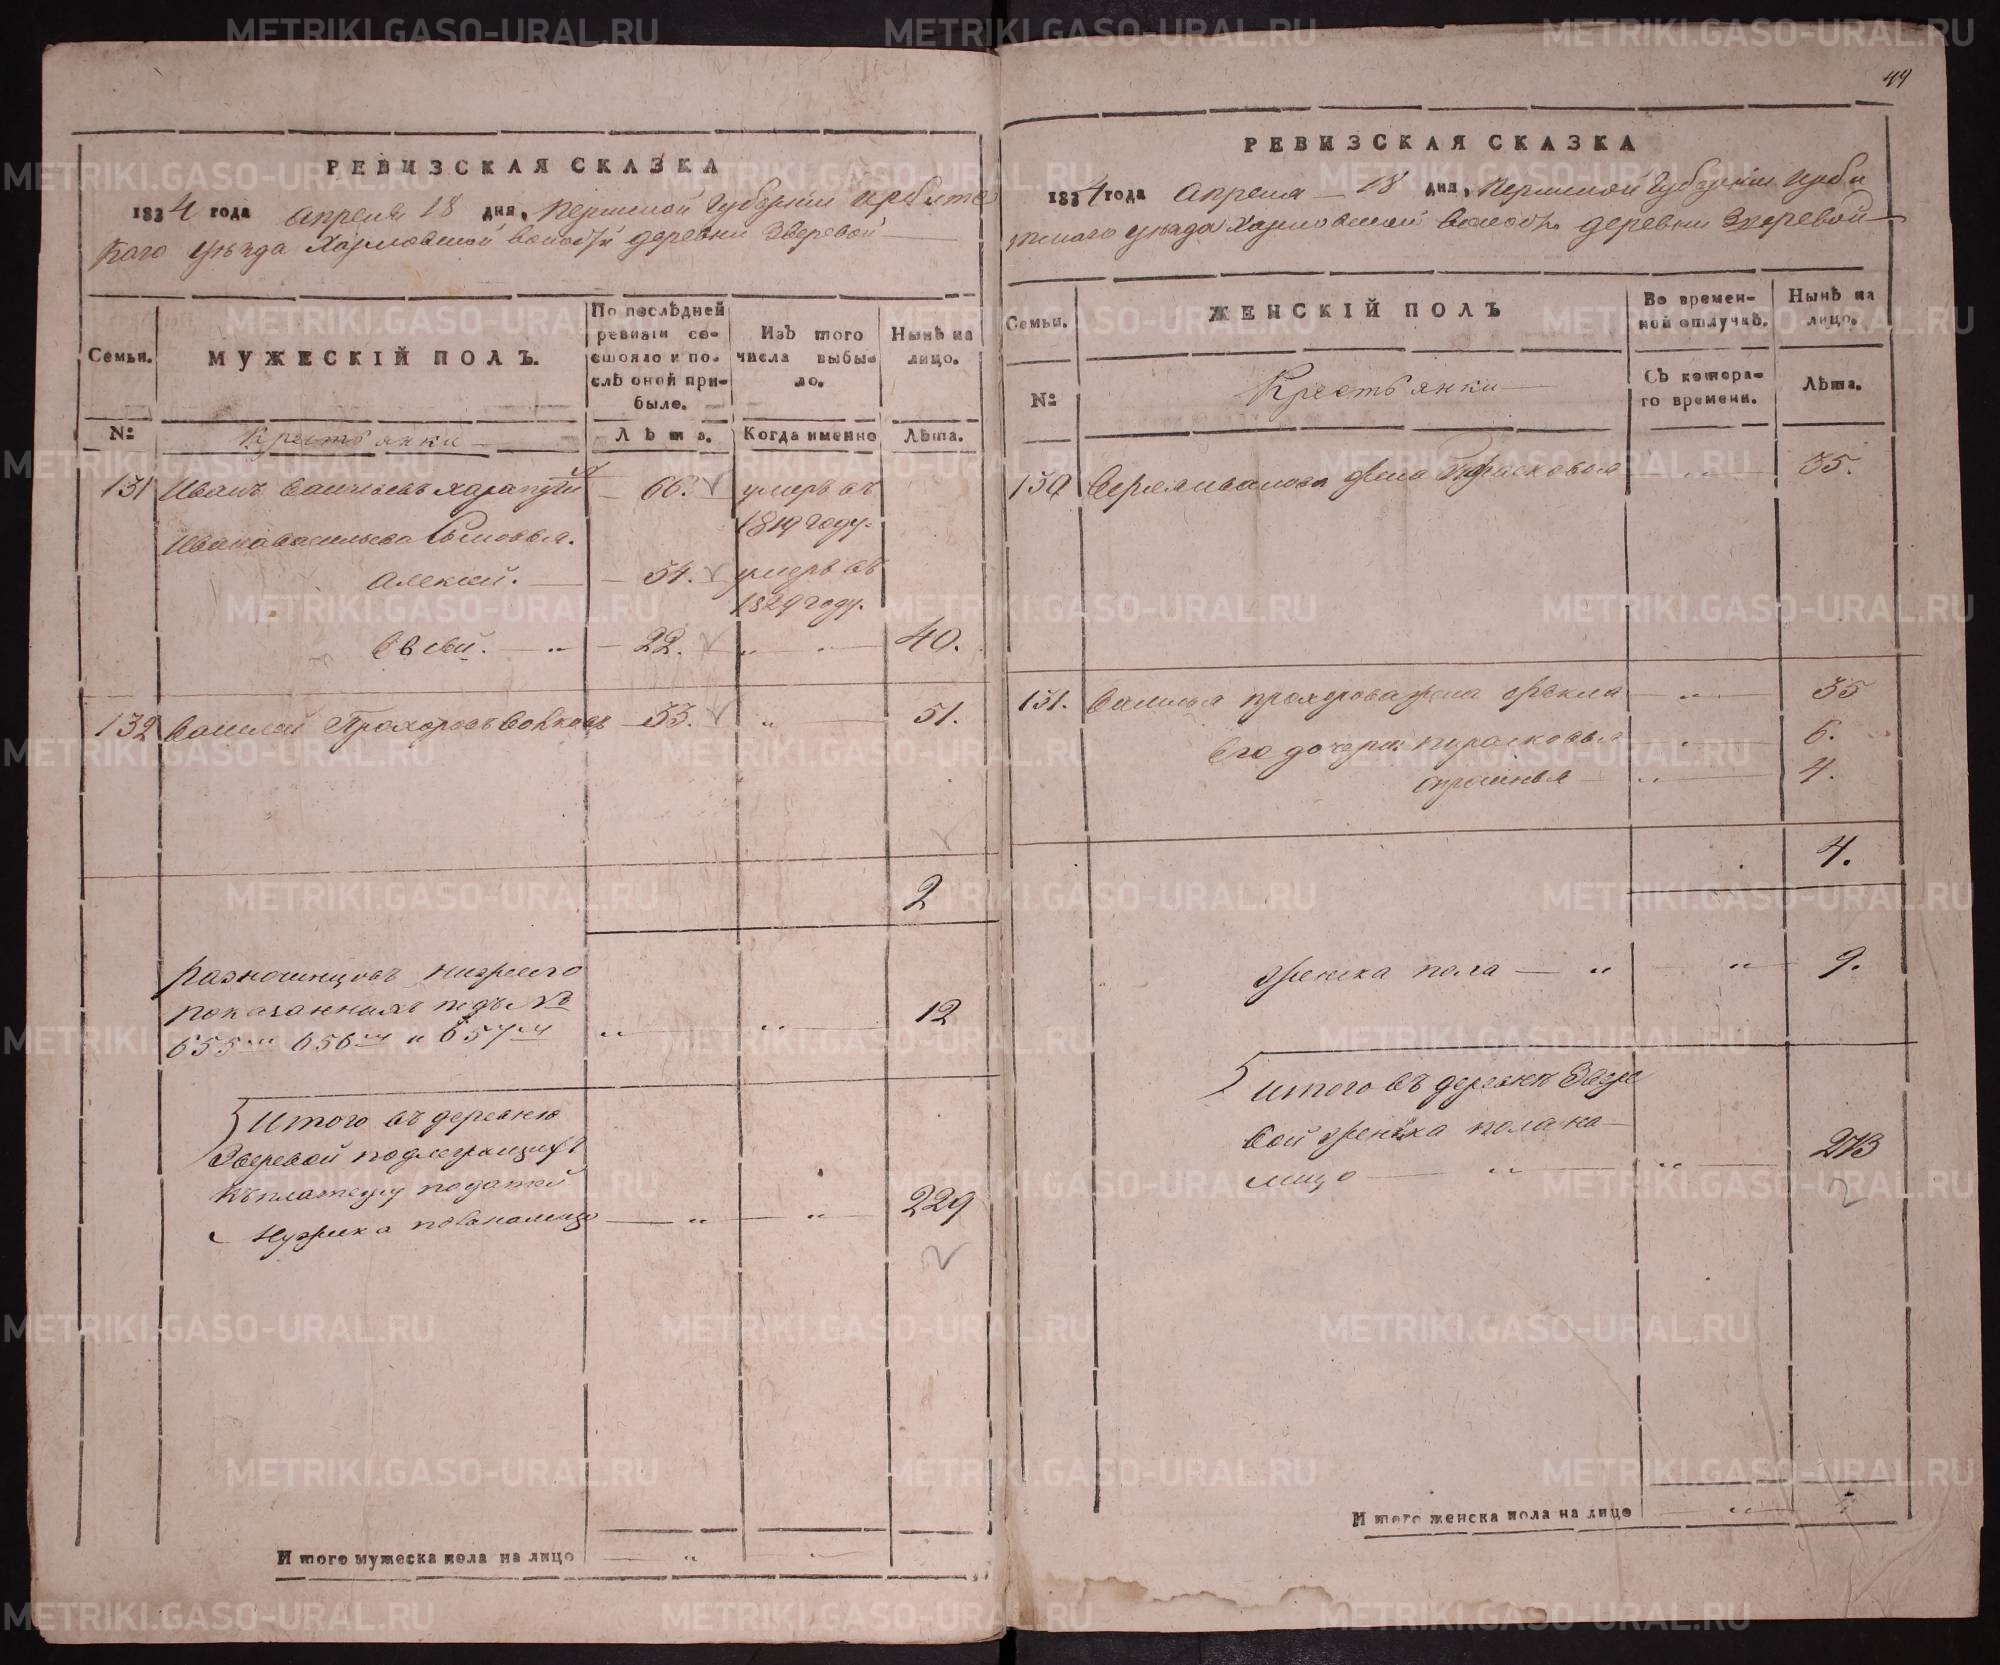 44
РЕВИЗСКАЯ СКАЗКА
1834 года апреля 18 дня, Пермской Губернии Ирбитс
кого уезда Харловской волости деревни Зверевой
Семьи.
МУЖЕСКІЙ ПОЛЪ.
По послѣдней ревизіи состояло и послѣ оной прибыло.
Изъ того числа выбыло.
Нынѣ на лицо.
№
Крестьянки
Лѣта.
Когда именно
Лѣта.
131 Иванъ Васильевъ 66. умеръ въ
1819 году.
Ивана Васильева сыновья.
Алексей. 54. умеръ въ
1829 году.
22. 40.
132 Василей Прохоровъ 33. 51.
2
Разночинцовъ
показанныхъ подъ №
655м 656м и 657м 12
Итого въ деревню
Зверевой подлежащихъ
къ платежу податей
мужска пола на лицо 229
Итого мужеска пола на лицо
РЕВИЗСКАЯ СКАЗКА
1834 года апреля 18 дня, Пермской Губернии Ирби
тскаго уезда Харловской волости деревни Зверевой
Семьи.
ЖЕНСКІЙ ПОЛЪ
Во временной отлучкѣ.
Нынѣ на лицо.
№
Крестьянки
Съ котораго времени.
Лѣта.
жена Парасковья 35.
131. Василья Прохорова жена Фекла 35
Его дочери Парасковья 6.
4.
4.
женска пола 9.
Итого въ деревне Звере
вой женска пола на
лицо 273
Итого женска пола на лицо
METRIKI.GASO-URAL.RU